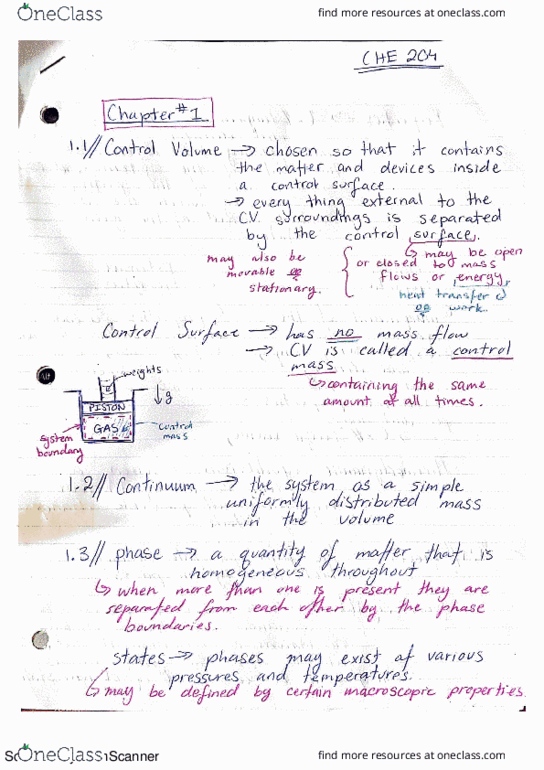 OneClass
find more resources at oneclass.com
CHE 204
Chapter #1
1.1// Control Volume → chosen so that it contains
the matter and devices inside
a control surface.
→ every thing external to the
CV surroundings is separated
by the control surface.
↳ may be open
or closed to mass
flows or energy,
heat transfer
or work.
may also be
movable or
stationary.
Control Surface → has no mass flow
→ CV is called a control
mass
↳ containing the same
amount at all times.
weights
↓g
PISTON
GAS
control
mass
system
boundary
1.2// Continuum → the system as a simple
uniformly distributed mass
in the volume
1.3// phase → a quantity of matter that is
homogeneous throughout
↳ when more than one is present they are
separated from each other by the phase
boundaries.
states → phases may exist at various
pressures and temperatures.
↳ may be defined by certain macroscopic properties
OneClass
Scanner
find more resources at oneclass.com